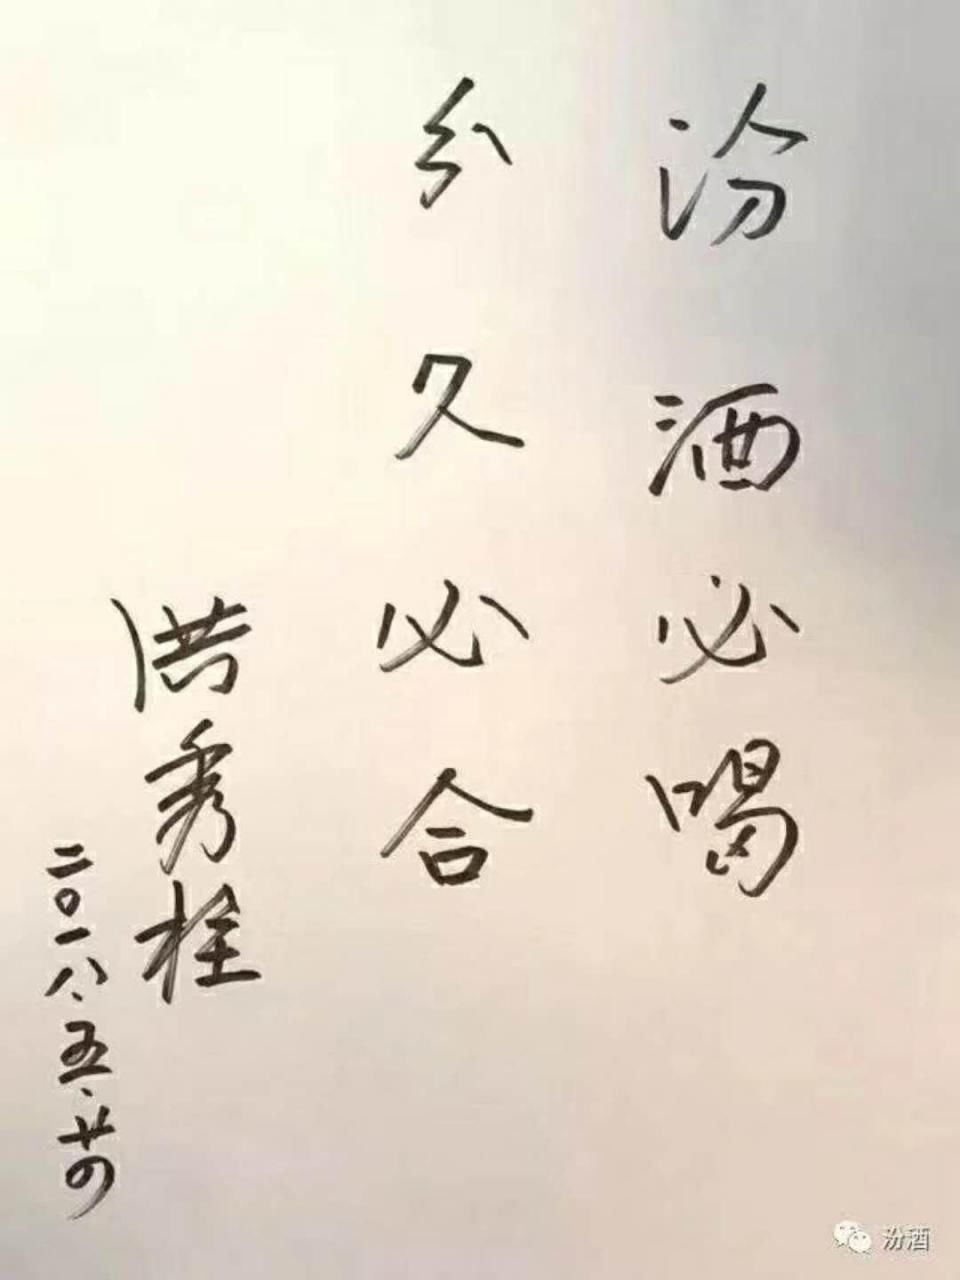 汾酒必喝
分久必合
洪秀柱
二〇一八、五、廿四
汾酒